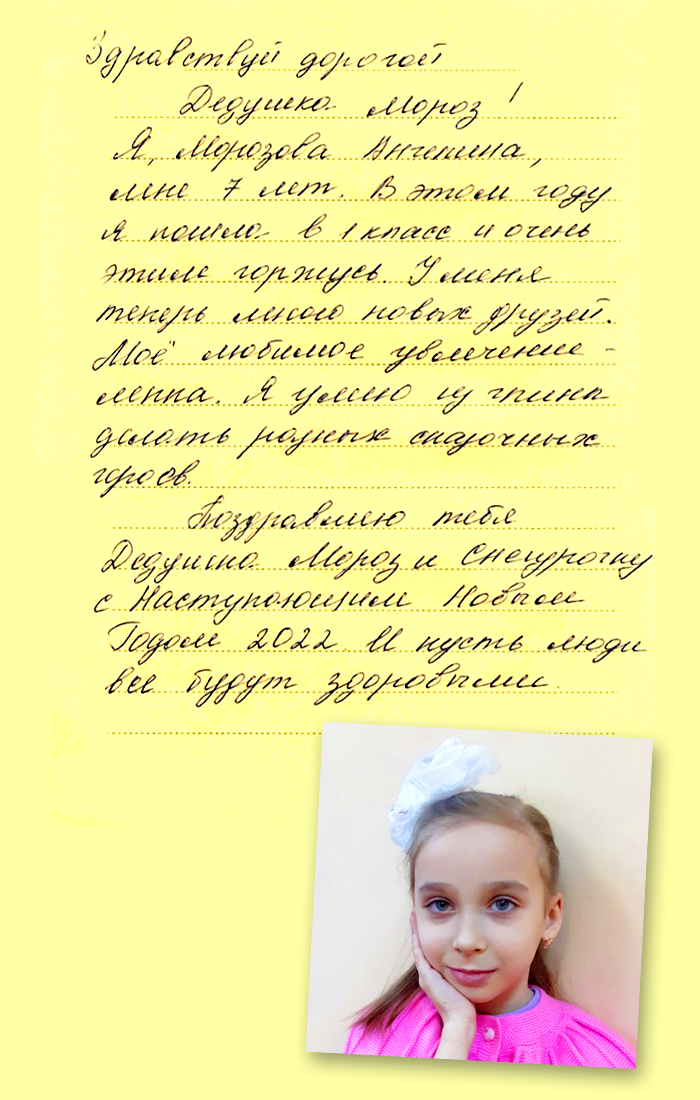 Здравствуй дорогой
Дедушка Мороз!
Я, Морозова Ангелина,
мне 7 лет. В этом году
я пошла в 1 класс и очень
этим горжусь. У меня
теперь много новых друзей.
Моё любимое увлечение -
лепка. Я умею из глины
делать разных сказочных
героев.
Поздравляю тебя
Дедушка Мороз и Снегурочку
с Наступающим Новым
Годом 2022. И пусть люди
все будут здоровыми.